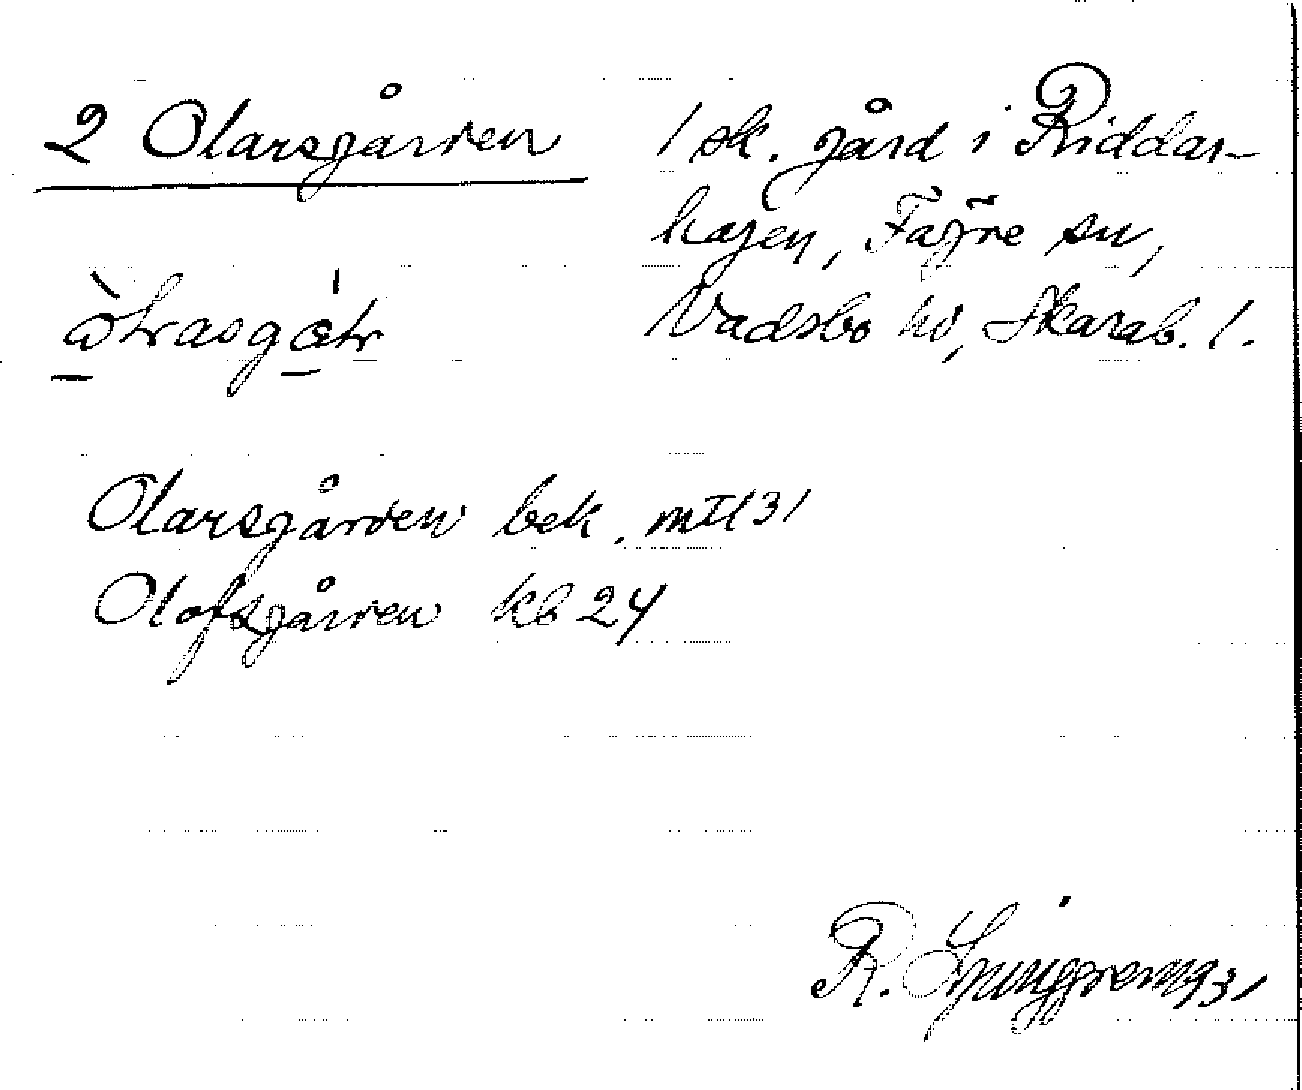 2 Olarsgården
1 sk. gård i Riddar-
hagen, Fägre sn,
Vadsbo hd, Skarab. l.
Olarsgården bek. mtl 31
Olofsgården kb 24
R. Ljunggren 1931